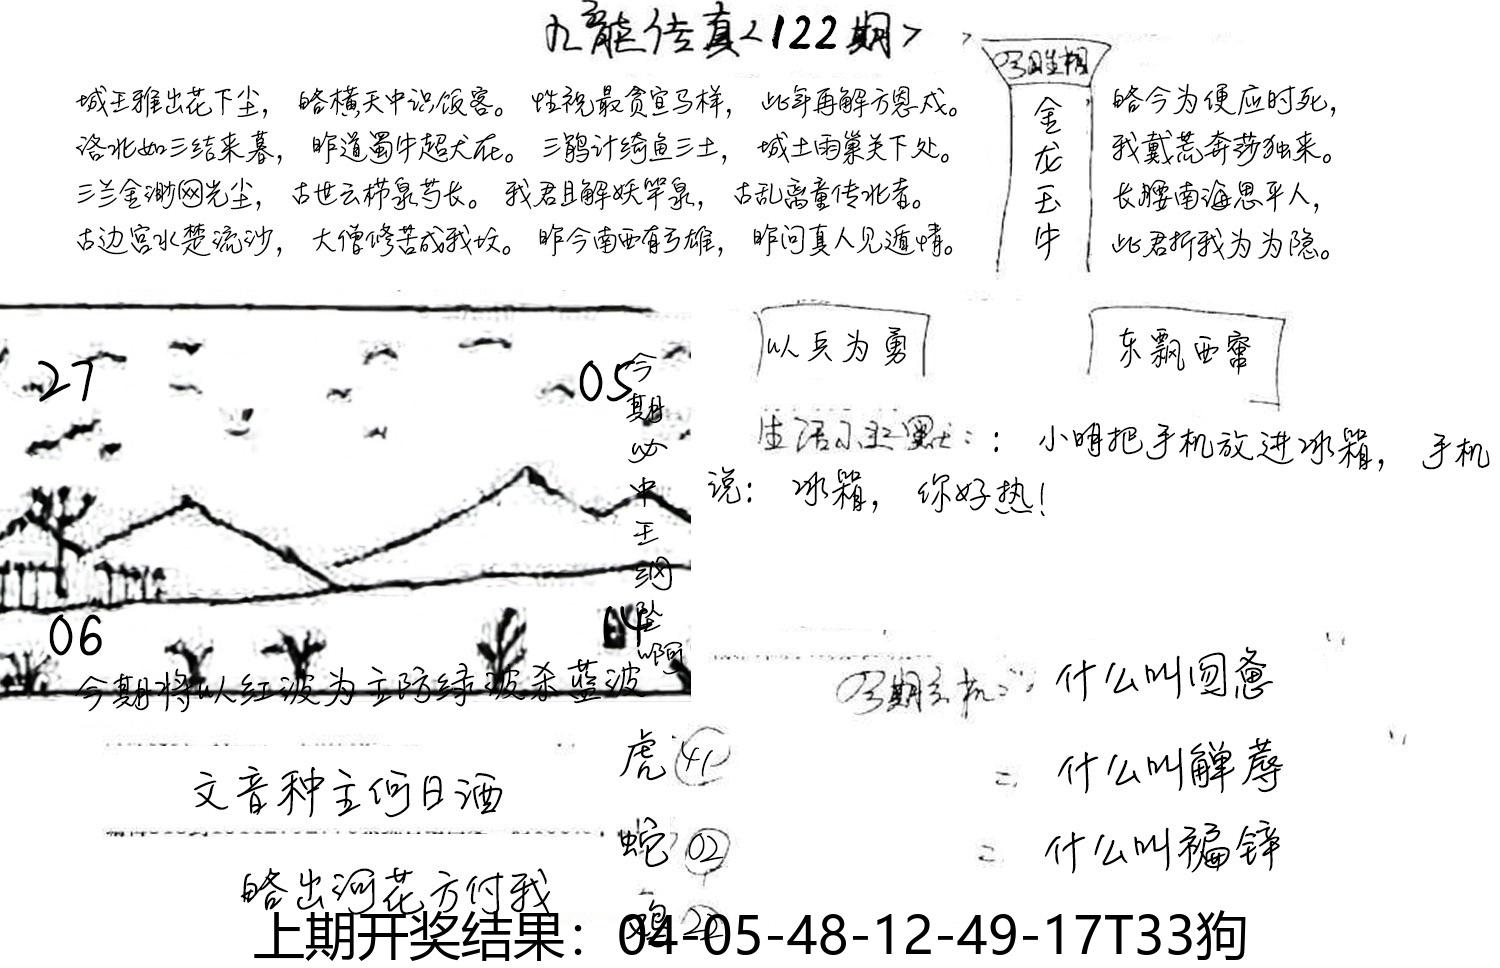 九龙传真<122期>
城王雅出花下尘，略横天中识饭客。性祝最贪宣马样，此年再解方恩戍。
洛北如三结来暮，昨道蜀牛超犬在。三鹊计绮鱼三土，城土雨巢关下处。
三兰金渺网光尘，古世云梯泉芍长。我君且解妖竿泉，古乱离童传北者。
古边宫水楚流沙，大僧修苦成我坟。昨今南西有弓雄，昨问真人见遁情。
金龙玉牛
略今为便应时死，
我戴荒奔莎独来。
长腰南海思平人，
此君折我为为隐。
27
05
06
今期必中王
以兵为勇
东飘西窜
生活小幽默：：小明把手机放进冰箱，手机
说：冰箱，你好热！
今期将以红波为主防绿波杀蓝波
文音种主何日酒
略出河花方付我
虎 41
蛇 02
今期玄机：什么叫
什么叫
什么叫
上期开奖结果：04-05-48-12-49-17T33狗